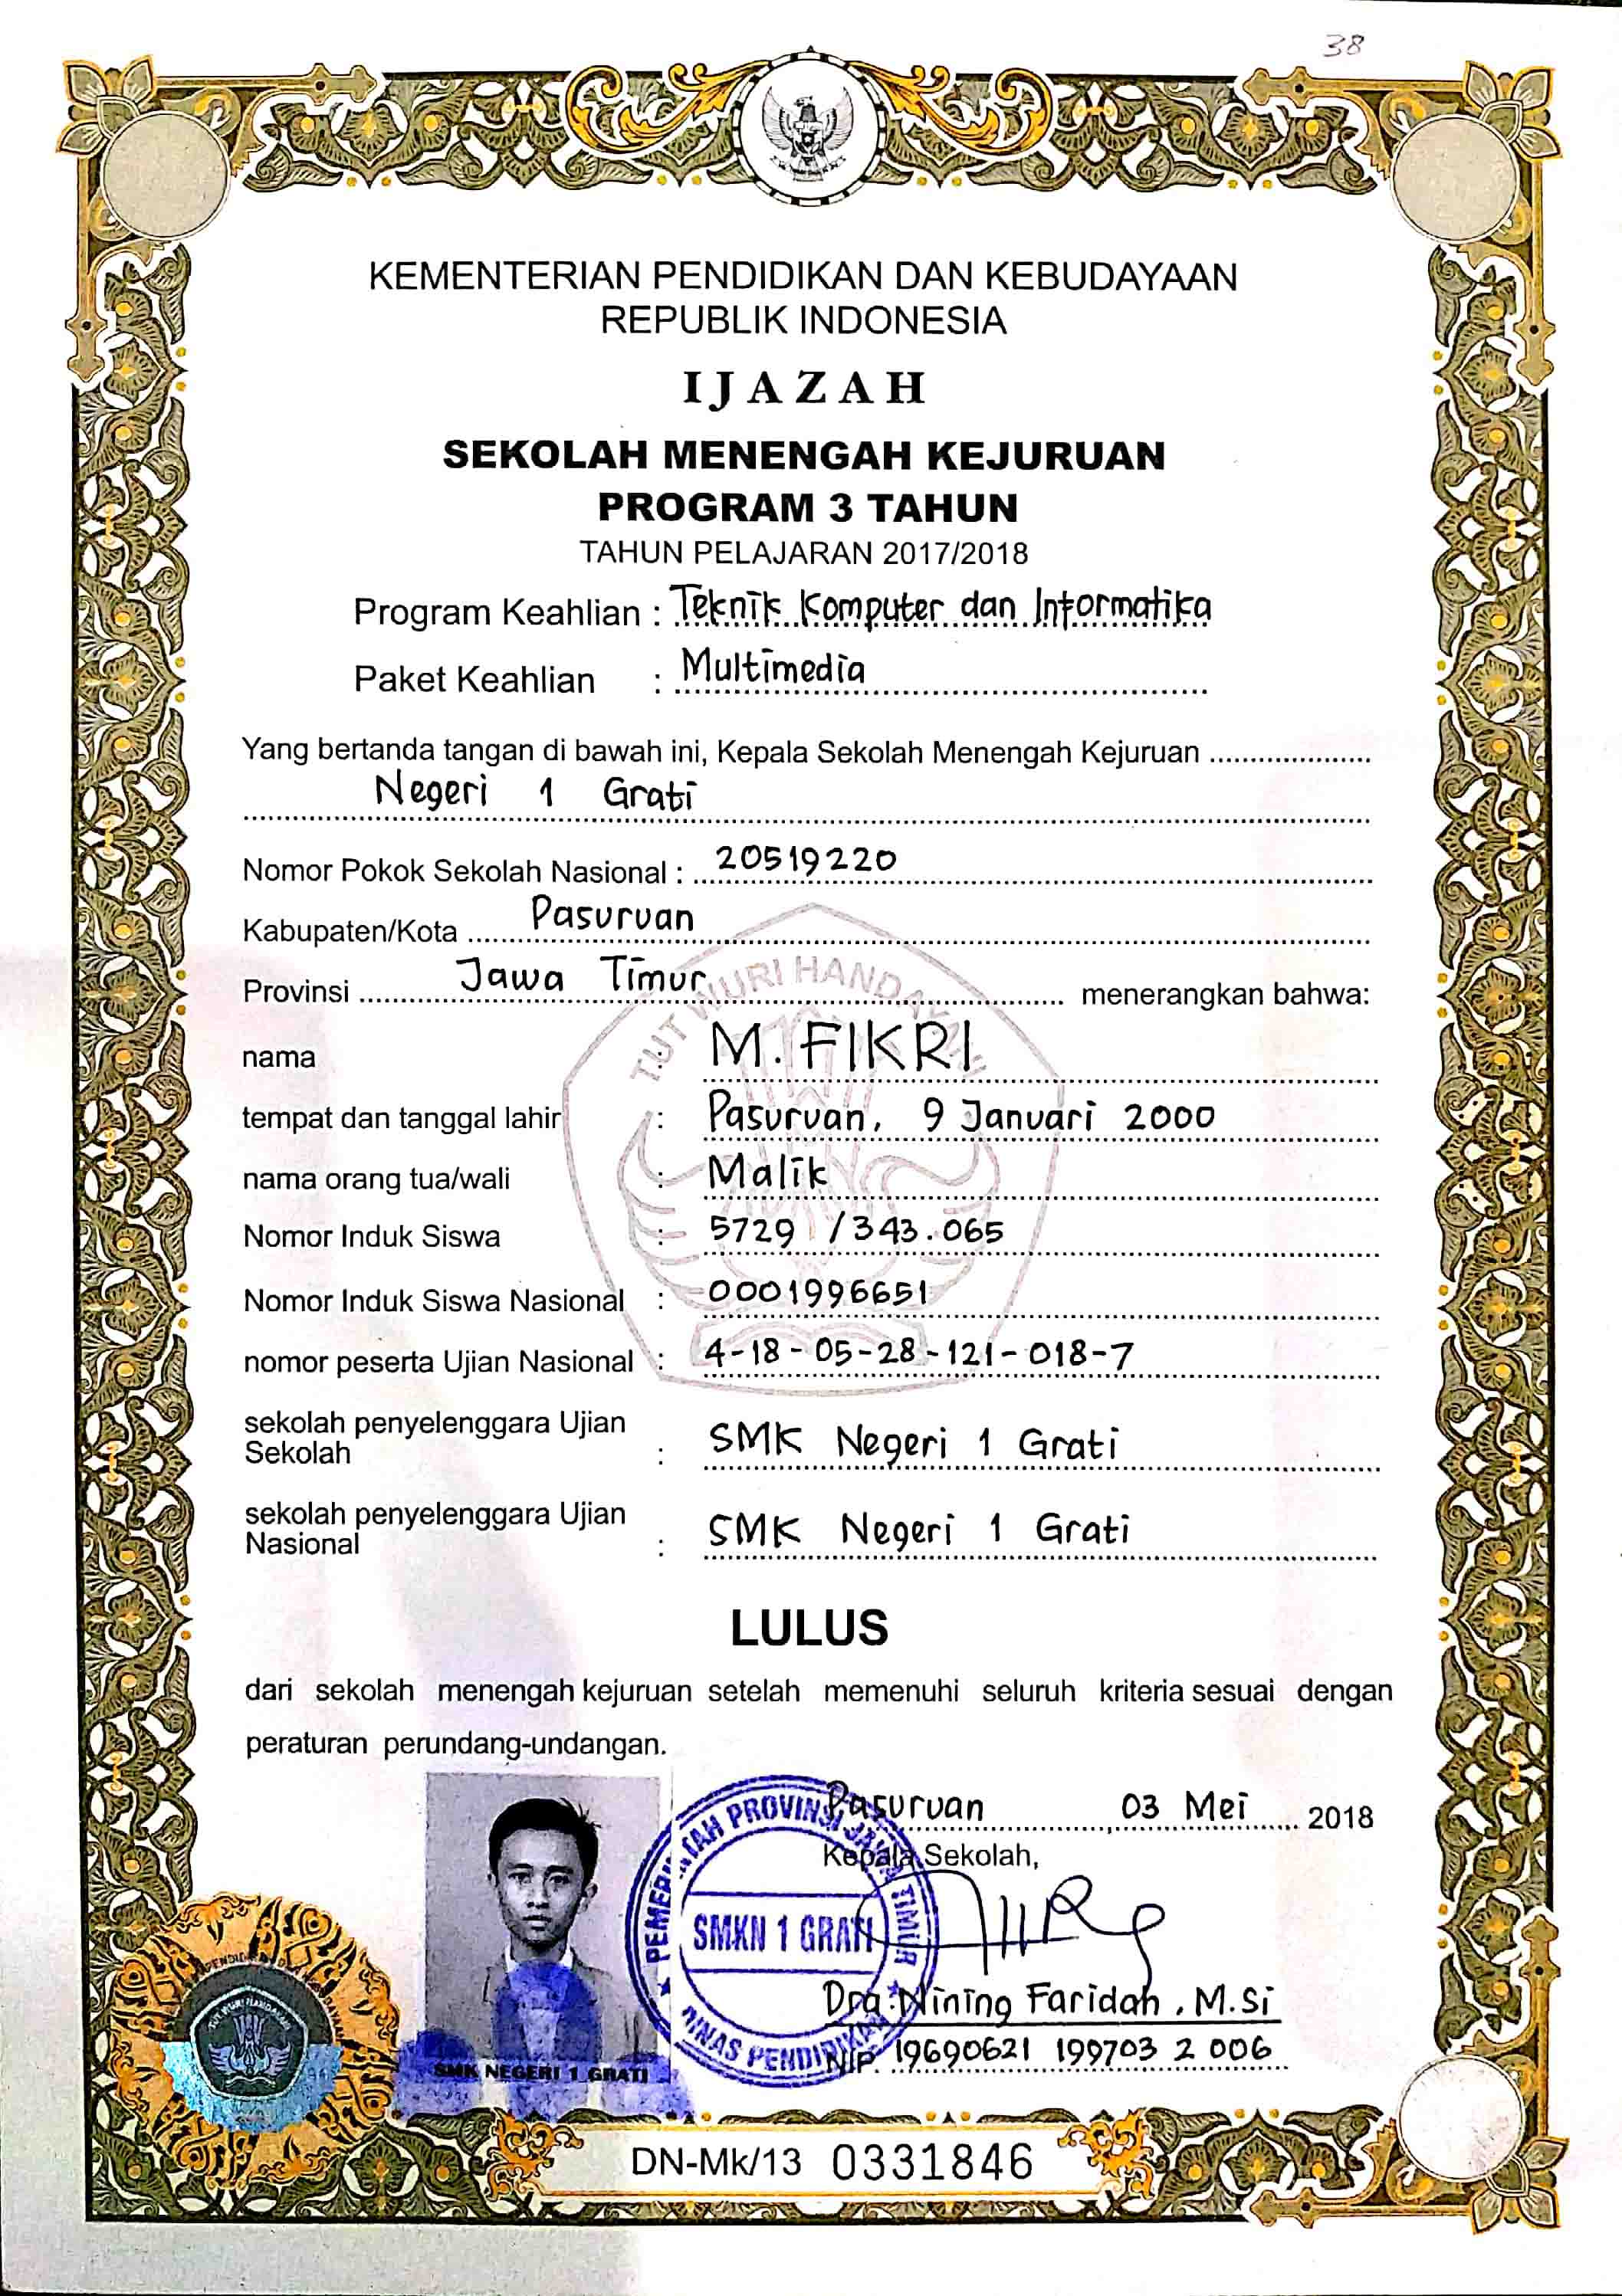 38
KEMENTERIAN PENDIDIKAN DAN KEBUDAYAAN
REPUBLIK INDONESIA
IJAZAH
SEKOLAH MENENGAH KEJURUAN
PROGRAM 3 TAHUN
TAHUN PELAJARAN 2017/2018
Program Keahlian : Teknik Komputer dan Informatika
Paket Keahlian : Multimedia
Yang bertanda tangan di bawah ini, Kepala Sekolah Menengah Kejuruan
Negeri 1 Grati
Nomor Pokok Sekolah Nasional : 20519220
Kabupaten/Kota Pasuruan
Provinsi Jawa Timur menerangkan bahwa:
TUT WURI HANDAYANI
nama : M. FIKRI
tempat dan tanggal lahir : Pasuruan, 9 Januari 2000
nama orang tua/wali : Malik
Nomor Induk Siswa : 5729 /343.065
Nomor Induk Siswa Nasional : 0001996651
nomor peserta Ujian Nasional : 4-18-05-28-121-018-7
sekolah penyelenggara Ujian
Sekolah : SMK Negeri 1 Grati
sekolah penyelenggara Ujian
Nasional : SMK Negeri 1 Grati
LULUS
dari sekolah menengah kejuruan setelah memenuhi seluruh kriteria sesuai dengan
peraturan perundang-undangan.
Pasuruan, 03 Mei 2018
Kepala Sekolah,
PEMERINTAH PROVINSI JAWA TIMUR
SMKN 1 GRATI
DINAS PENDIDIKAN
Dra. Nining Faridah, M.Si
NIP. 19690621 199703 2 006
SMK NEGERI 1 GRATI
TUT WURI HANDAYANI
DN-Mk/13 0331846